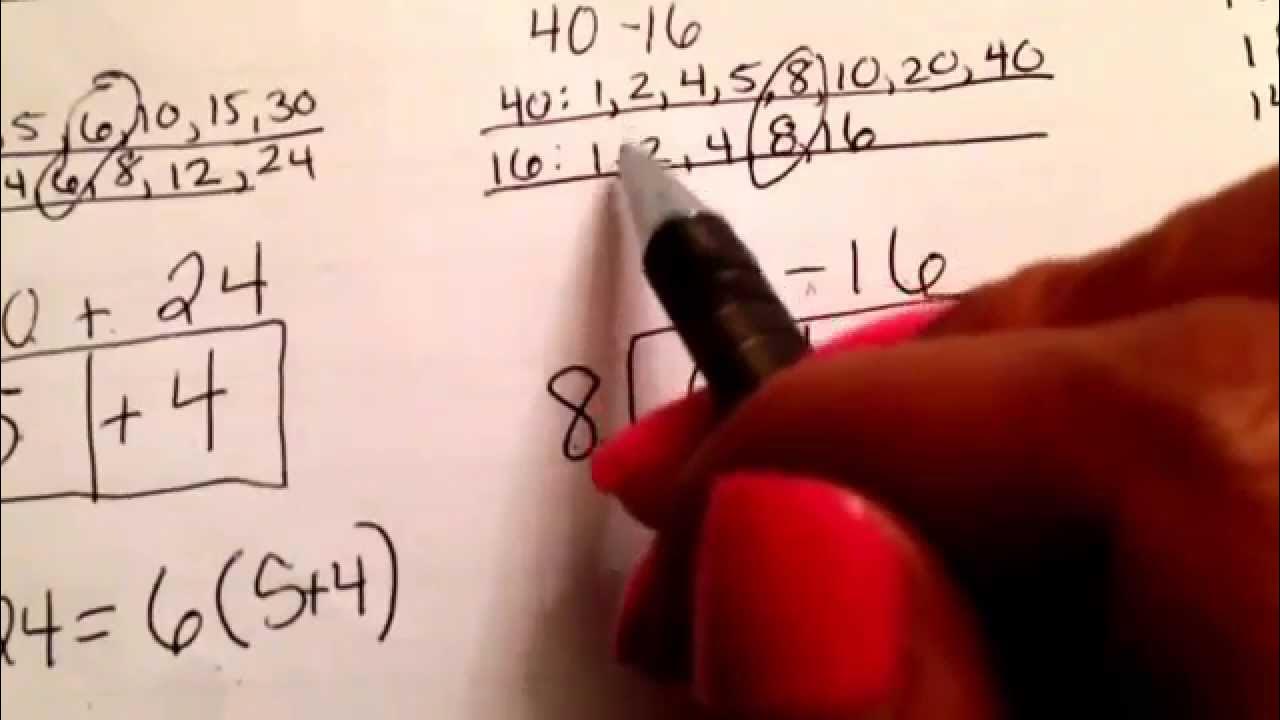 5, 6, 10, 15, 30
4, 6, 8, 12, 24
0 + 24
5 + 4
24 = 6(5+4)
40 - 16
40: 1, 2, 4, 5, 8, 10, 20, 40
16: 1, 2, 4, 8, 16
- 16
8